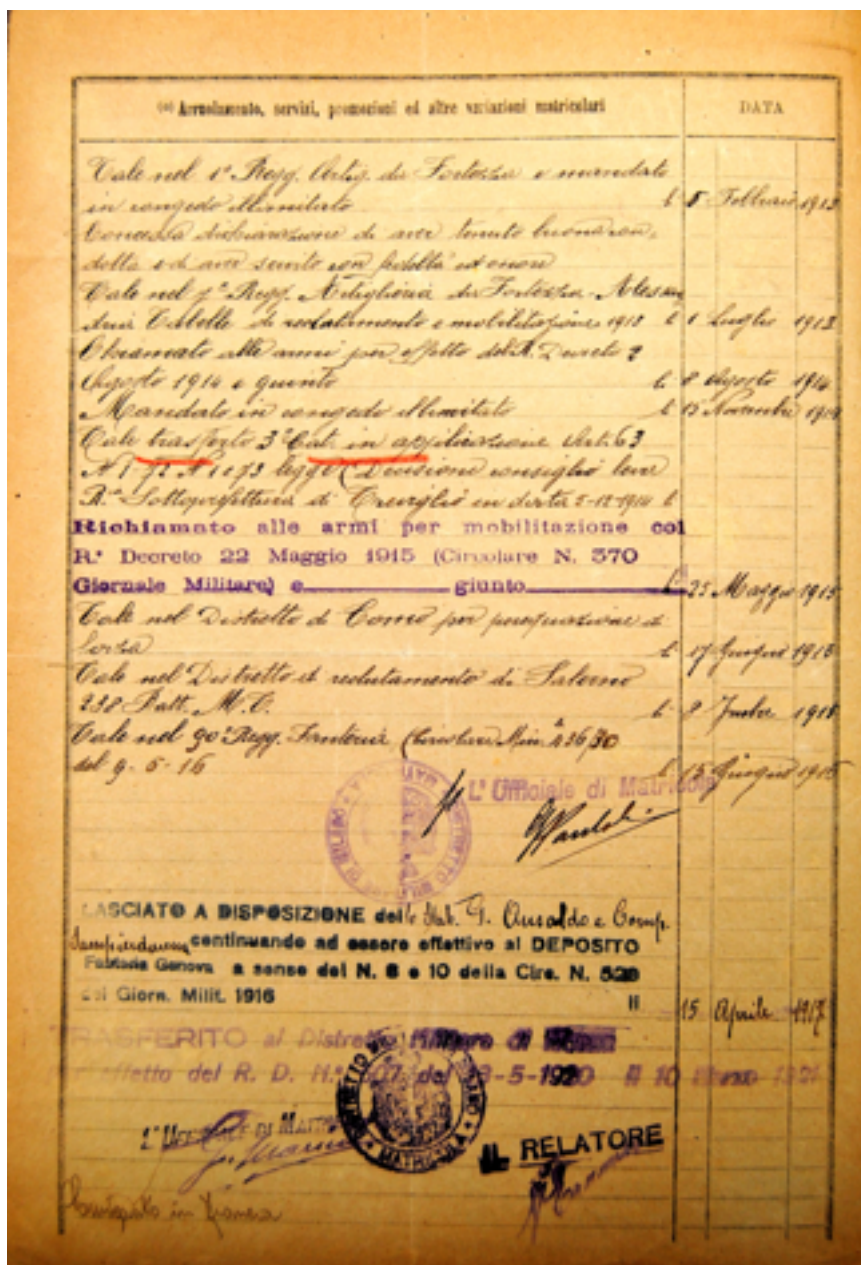 Arruolamento, servizi, promozioni ed altre variazioni matricolari DATA
Tale nel 1° Regg. Artig. da Fortezza e mandato
in congedo illimitato li 5 Febbraio 1913
Concessa dichiarazione di aver tenuto buona con,
dotta ed aver servito con fedeltà ed onore
Tale nel 7° Regg. Artiglieria da Fortezza - Alessan
dria Tabelle di reclutamento e mobilitazione 1913 li 1 Luglio 1913
Chiamato alle armi per effetto del R. Decreto 2
Agosto 1914 e giunto li 8 Agosto 1914
Mandato in congedo illimitato li 15 Novembre 1914
Tale trasferto 3ª Cat. in applicazione Art. 63
N 1 72 N 1 e 73 legge (Decisione consiglio leva
R.ª Sottoprefettura di Treviglio in data 5-12-1914 li
Richiamato alle armi per mobilitazione col
R.° Decreto 22 Maggio 1915 (Circolare N. 370
Giornale Militare) e giunto li 25 Maggio 1915
Tale nel Distretto di Como per perequazione di
forza li 17 Giugno 1915
Tale nel Distretto di reclutamento di Salerno
238 Batt. M.T. li 8
Tale nel 90° Regg. Fanteria (Circolare Min.
del 9-6-16 li 15 Giugno
L'Ufficiale di Matricola
LASCIATO A DISPOSIZIONE dello Stab. G. Ansaldo e Comp.
Sampierdarena continuando ad essere effettivo al DEPOSITO
Fanteria Genova a senso del N. 8 e 10 della Circ. N.
del Giorn. Milit. 1916 li 15 Aprile 1917
TRASFERITO al Distretto Militare di
per effetto del R. D. N. del -5-1920 il 10
L'UFFICIALE DI MATRICOLA
MATRICOLA
IL RELATORE
in